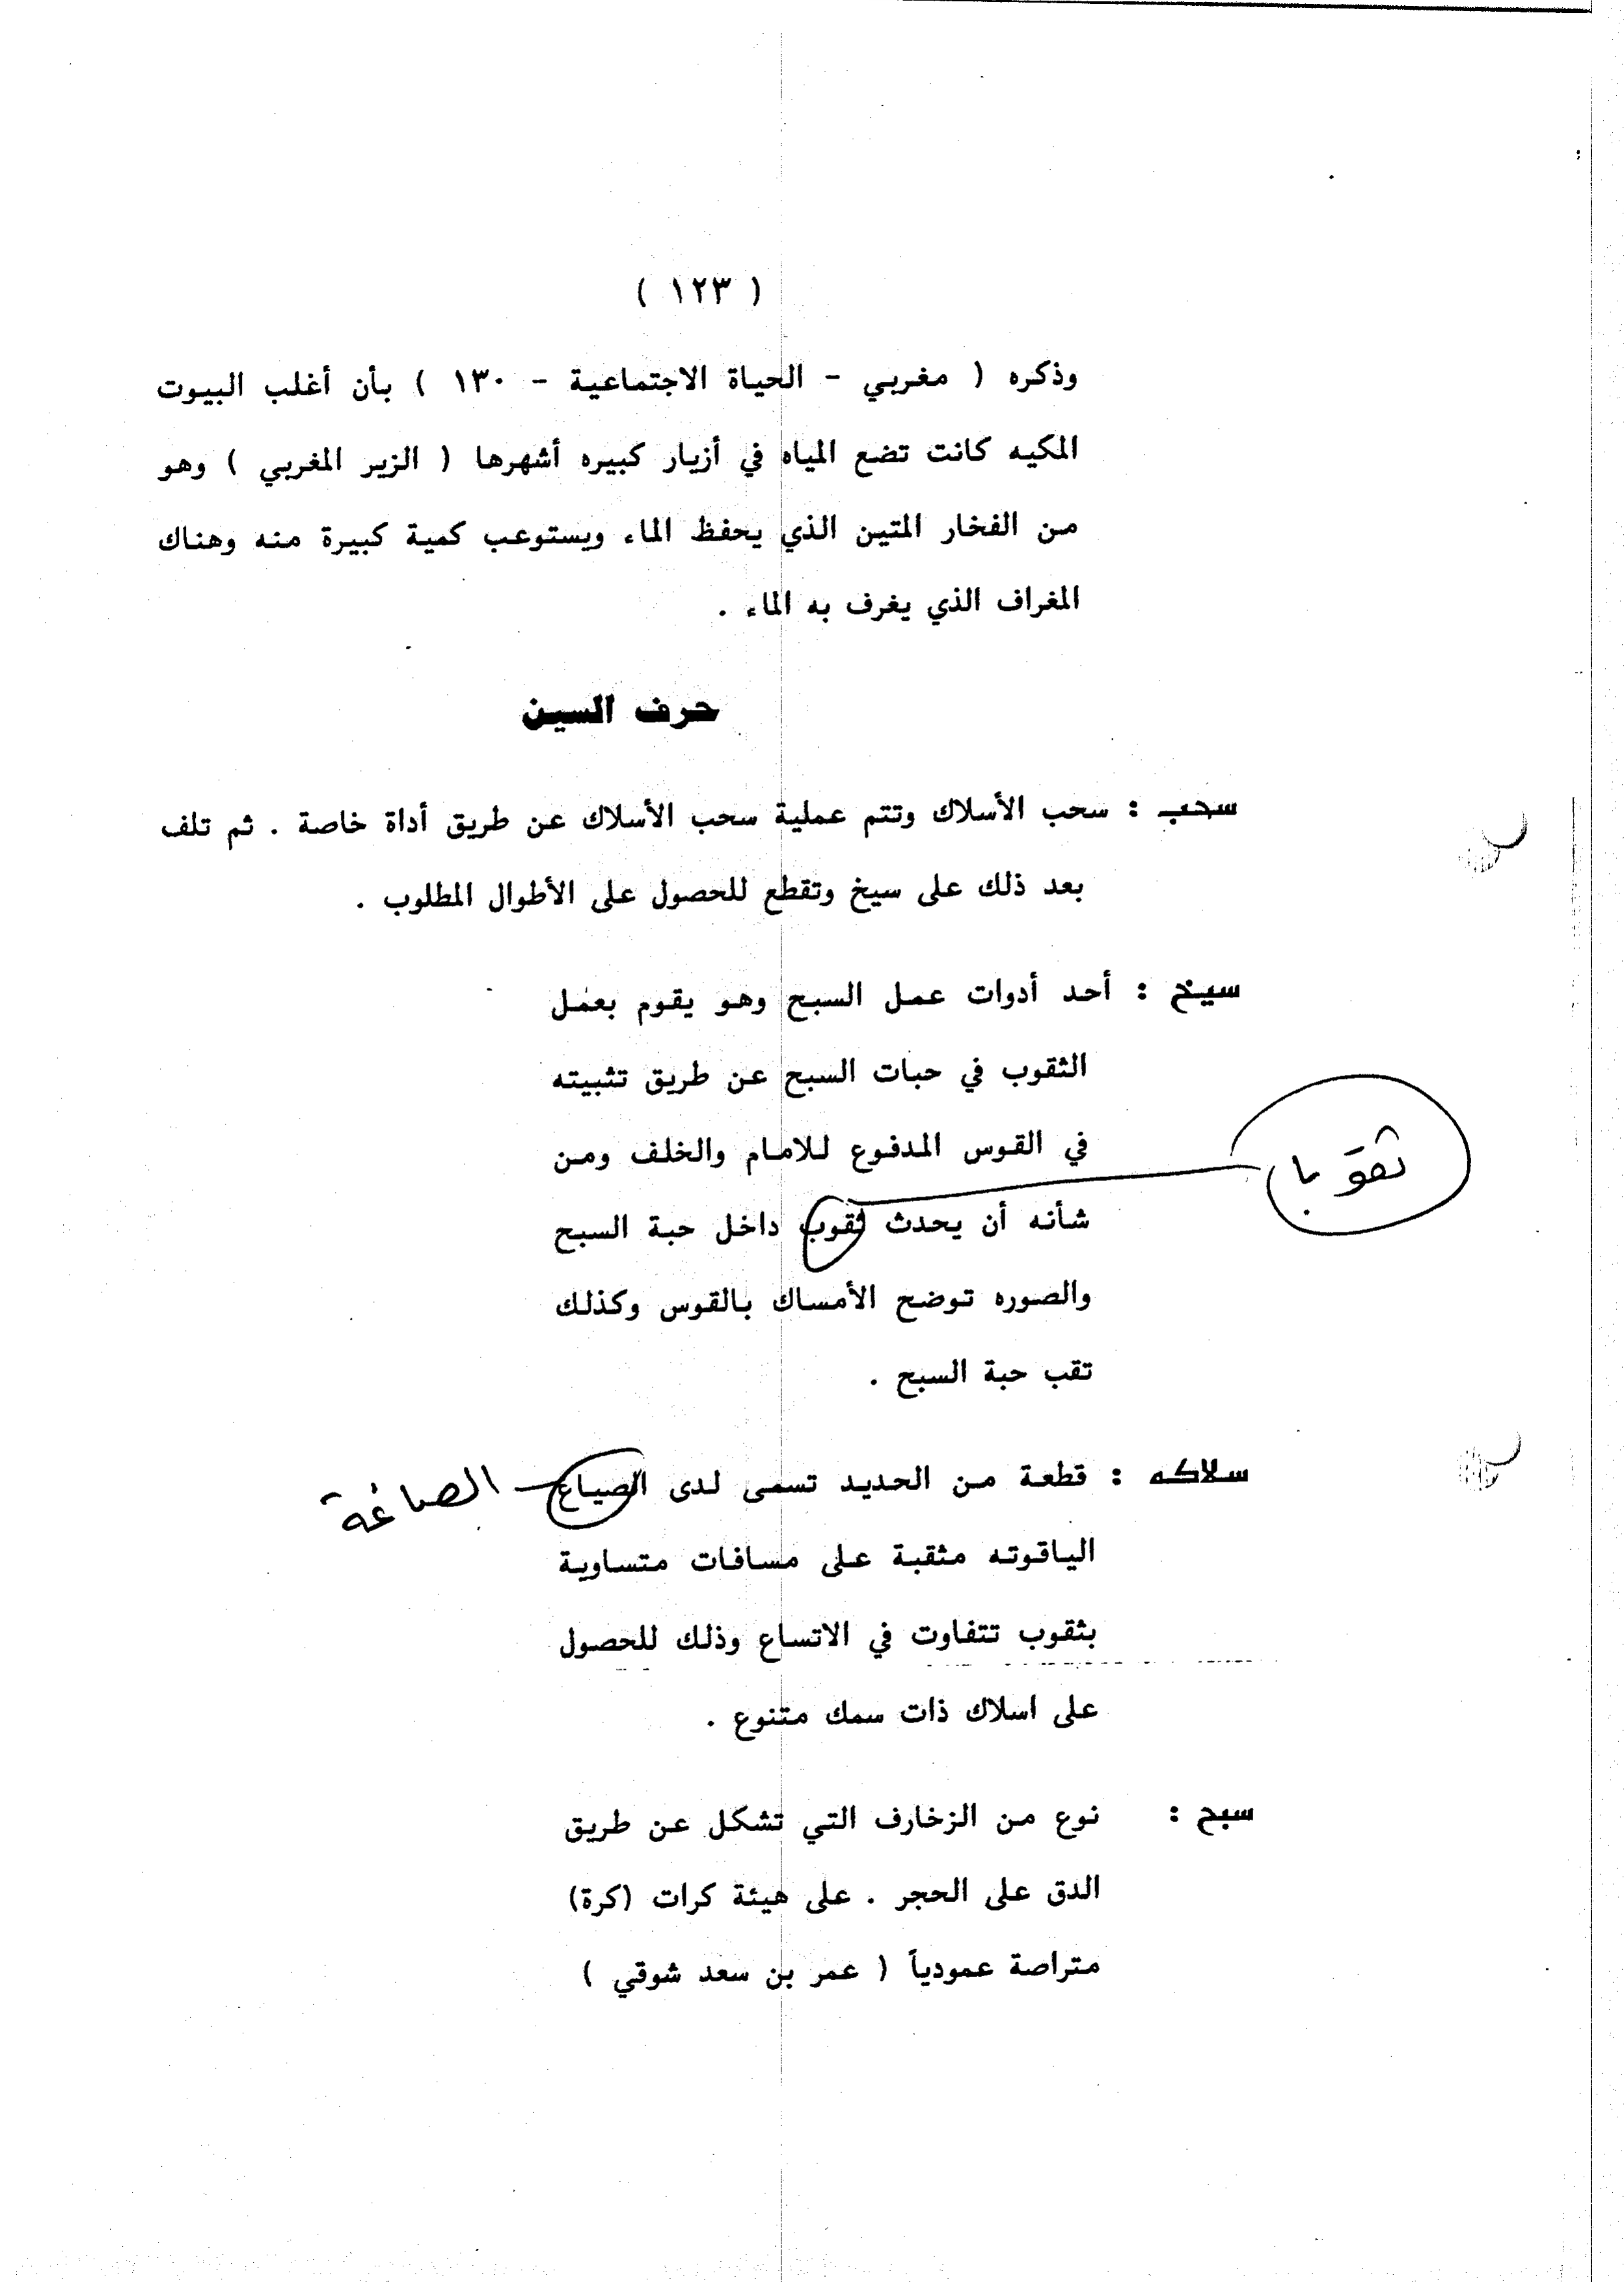 ( ١٢٣ )
وذكره ( مغربي - الحياة الاجتماعية - ١٣٠ ) بأن أغلب البيوت
المكيه كانت تضع المياه في أزيار كبيره أشهرها ( الزير المغربي ) وهو
من الفخار المتين الذي يحفظ الماء ويستوعب كمية كبيرة منه وهناك
المغراف الذي يغرف به الماء .
حرف السين
سحب : سحب الأسلاك وتتم عملية سحب الأسلاك عن طريق أداة خاصة . ثم تلف
بعد ذلك على سيخ وتقطع للحصول على الأطوال المطلوب .
سيخ : أحد أدوات عمل السبح وهو يقوم بعمل
الثقوب في حبات السبح عن طريق تثبيته
في القوس المدفوع للامام والخلف ومن
ثقوبا
شأنه أن يحدث ثقوب داخل حبة السبح
والصوره توضح الأمساك بالقوس وكذلك
تقب حبة السبح .
سلاكه : قطعة من الحديد تسمى لدى الصياع الصاغة
الياقوته مثقبة على مسافات متساوية
بثقوب تتفاوت في الاتساع وذلك للحصول
على اسلاك ذات سمك متنوع .
سبح : نوع من الزخارف التي تشكل عن طريق
الدق على الحجر . على هيئة كرات (كرة)
متراصة عمودياً ( عمر بن سعد شوقي )